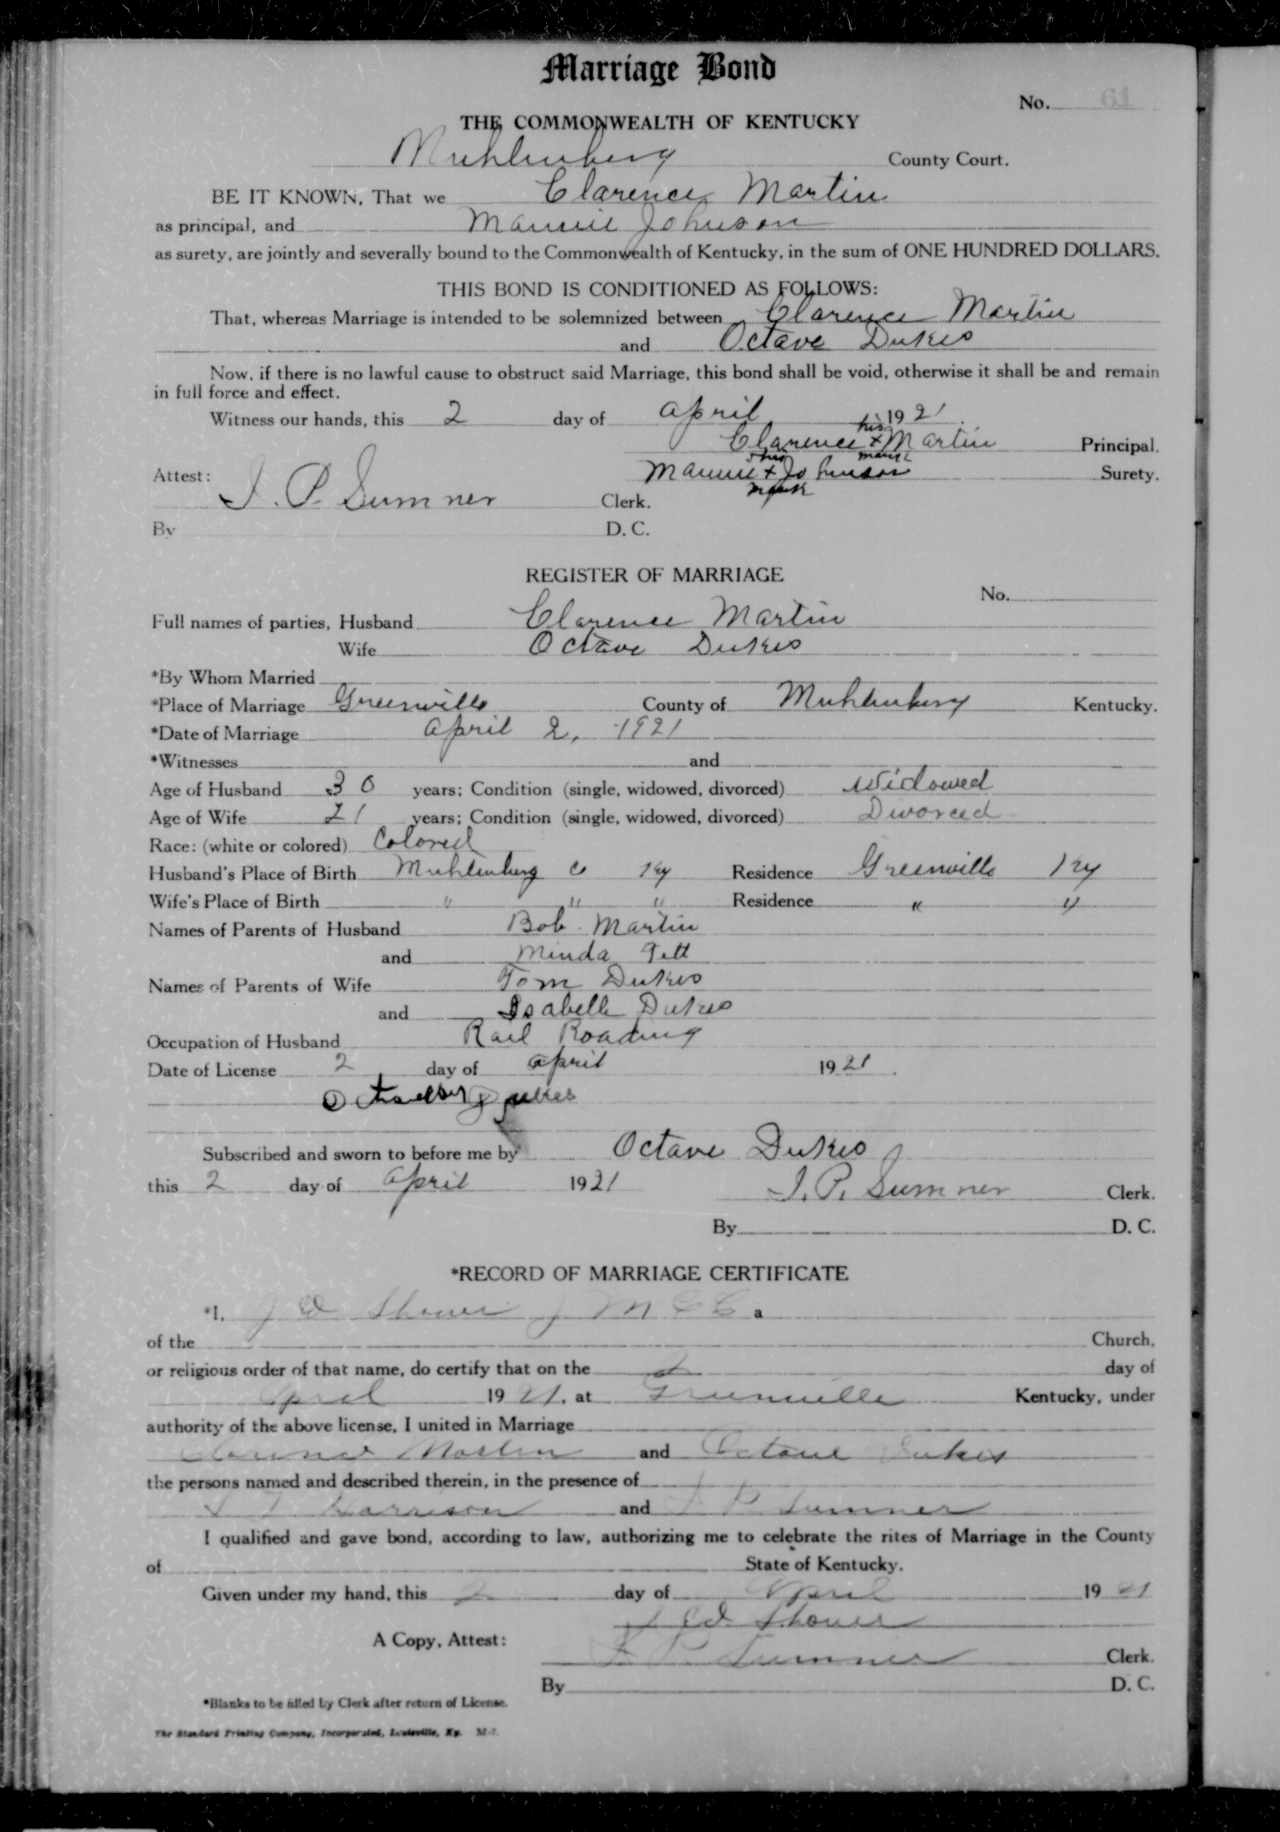 Marriage Bond
No. 61
THE COMMONWEALTH OF KENTUCKY
Muhlenberg County Court.
BE IT KNOWN, That we Clarence Martin
as principal, and Mannie Johnson
as surety, are jointly and severally bound to the Commonwealth of Kentucky, in the sum of ONE HUNDRED DOLLARS.
THIS BOND IS CONDITIONED AS FOLLOWS:
That, whereas Marriage is intended to be solemnized between Clarence Martin
and Octave Dukes
Now, if there is no lawful cause to obstruct said Marriage, this bond shall be void, otherwise it shall be and remain
in full force and effect.
Witness our hands, this 2 day of April 1921.
Clarence his x mark Martin Principal.
Mannie his x mark Johnson Surety.
Attest: J. P. Sumner Clerk.
By D. C.
REGISTER OF MARRIAGE
No.
Full names of parties, Husband Clarence Martin
Wife Octave Dukes
*By Whom Married
*Place of Marriage Greenville County of Muhlenberg Kentucky.
*Date of Marriage April 2, 1921
*Witnesses and
Age of Husband 30 years; Condition (single, widowed, divorced) Widowed
Age of Wife 21 years; Condition (single, widowed, divorced) Divorced
Race: (white or colored) Colored
Husband's Place of Birth Muhlenberg Co Ky Residence Greenville Ky
Wife's Place of Birth " " " Residence " "
Names of Parents of Husband Bob Martin
and Minda
Names of Parents of Wife Tom Dukes
and Isabelle Dukes
Occupation of Husband Rail Roading
Date of License 2 day of April 1921.
Dukes
Subscribed and sworn to before me by Octave Dukes
this 2 day of April 1921
J. P. Sumner Clerk.
By D. C.
*RECORD OF MARRIAGE CERTIFICATE
*I, J M C C a
of the Church,
or religious order of that name, do certify that on the 2 day of
April 1921, at Greenville Kentucky, under
authority of the above license, I united in Marriage
Clarence Martin and Octave Dukes
the persons named and described therein, in the presence of
Harrison and J P Sumner
I qualified and gave bond, according to law, authorizing me to celebrate the rites of Marriage in the County
of State of Kentucky.
Given under my hand, this 2 day of April 1921
A Copy, Attest: J P Sumner Clerk.
By D. C.
*Blanks to be filled by Clerk after return of License.
The Standard Printing Company, Incorporated, Louisville, Ky. M-7.